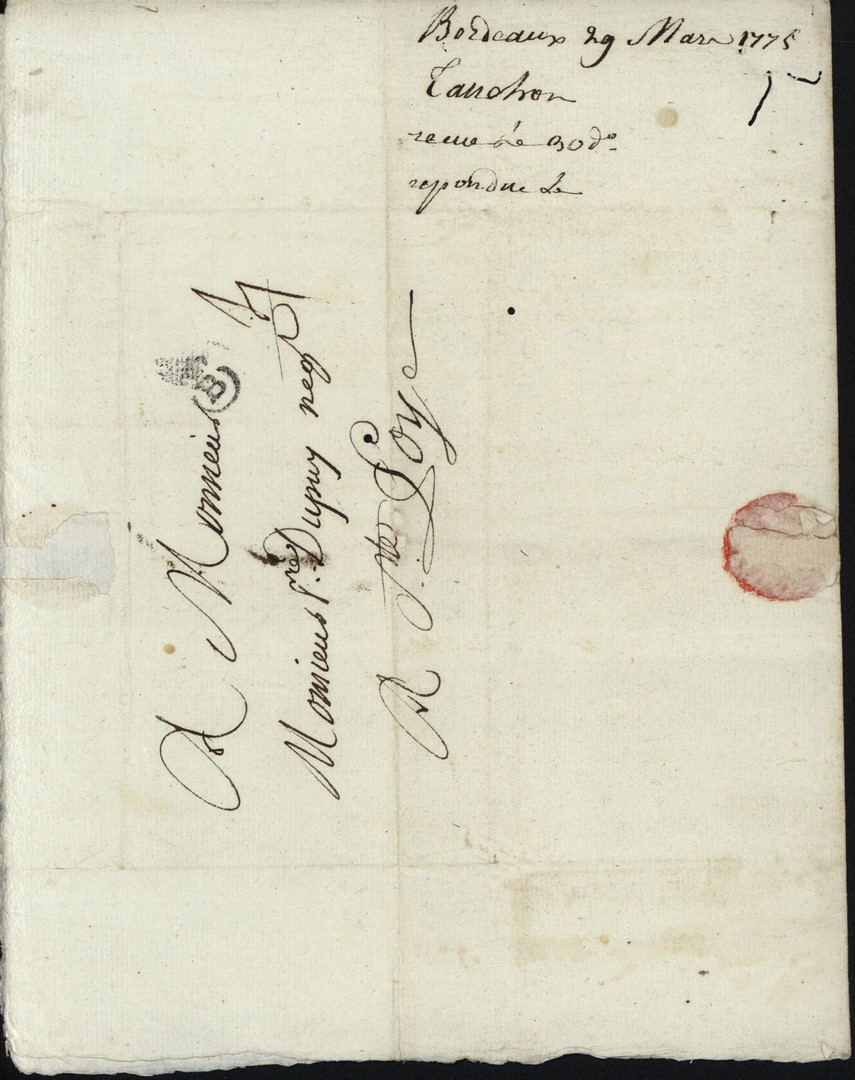 Bordeaux 29 Mars 1775
Tauchon
recue Le 30 d°
repondue Le
A Monsieur
B
Monsieur P.re Dupuy neg.t
A S.te Foye